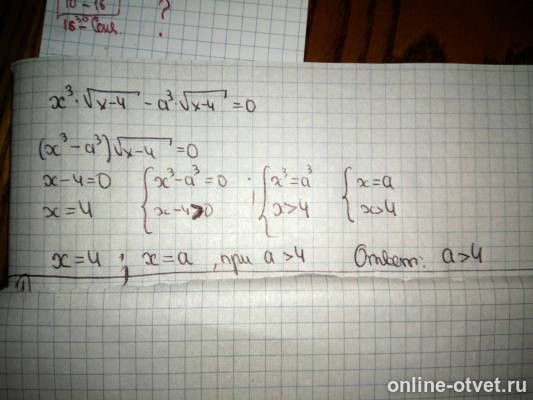 10 – 16
16 30 – Соня
?
x³·√x-4 - a³·√x-4 = 0
(x³-a³)√x-4 = 0
x-4=0 { x³-a³=0 { x³=a³ { x=a
x=4 x-4>0 x>4 x>4
x=4 ; x=a , при a>4 Ответ: a>4
online-otvet.ru